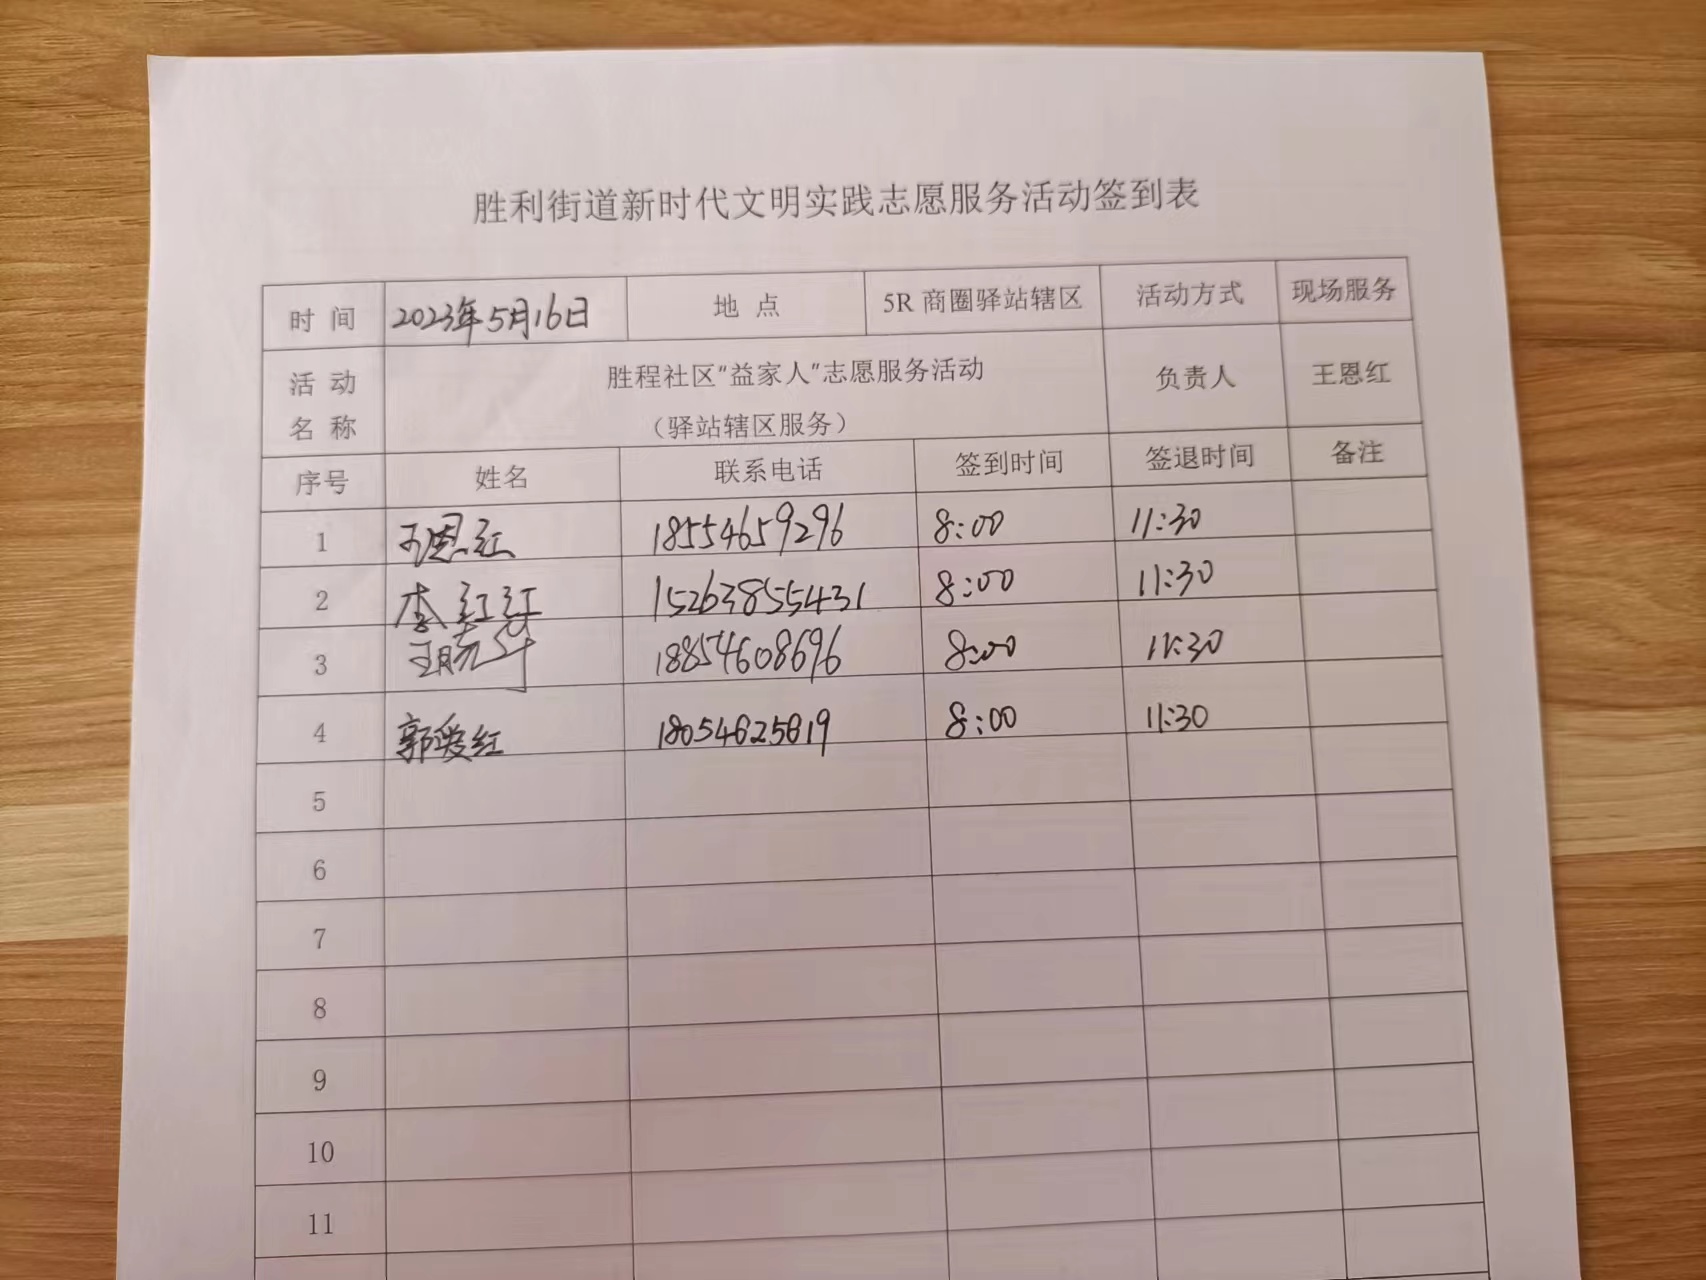 胜利街道新时代文明实践志愿服务活动签到表
时 间 2023年5月16日 地 点 5R 商圈驿站辖区 活动方式 现场服务
活 动 名 称 胜程社区“益家人”志愿服务活动 负责人 王恩红
（驿站辖区服务）
序号 姓名 联系电话 签到时间 签退时间 备注
1 王恩红 18554659296 8:00 11:30
2 李红红 15263855431 8:00 11:30
3 18854608696 8:00 11:30
4 郭爱红 18054625819 8:00 11:30
5
6
7
8
9
10
11